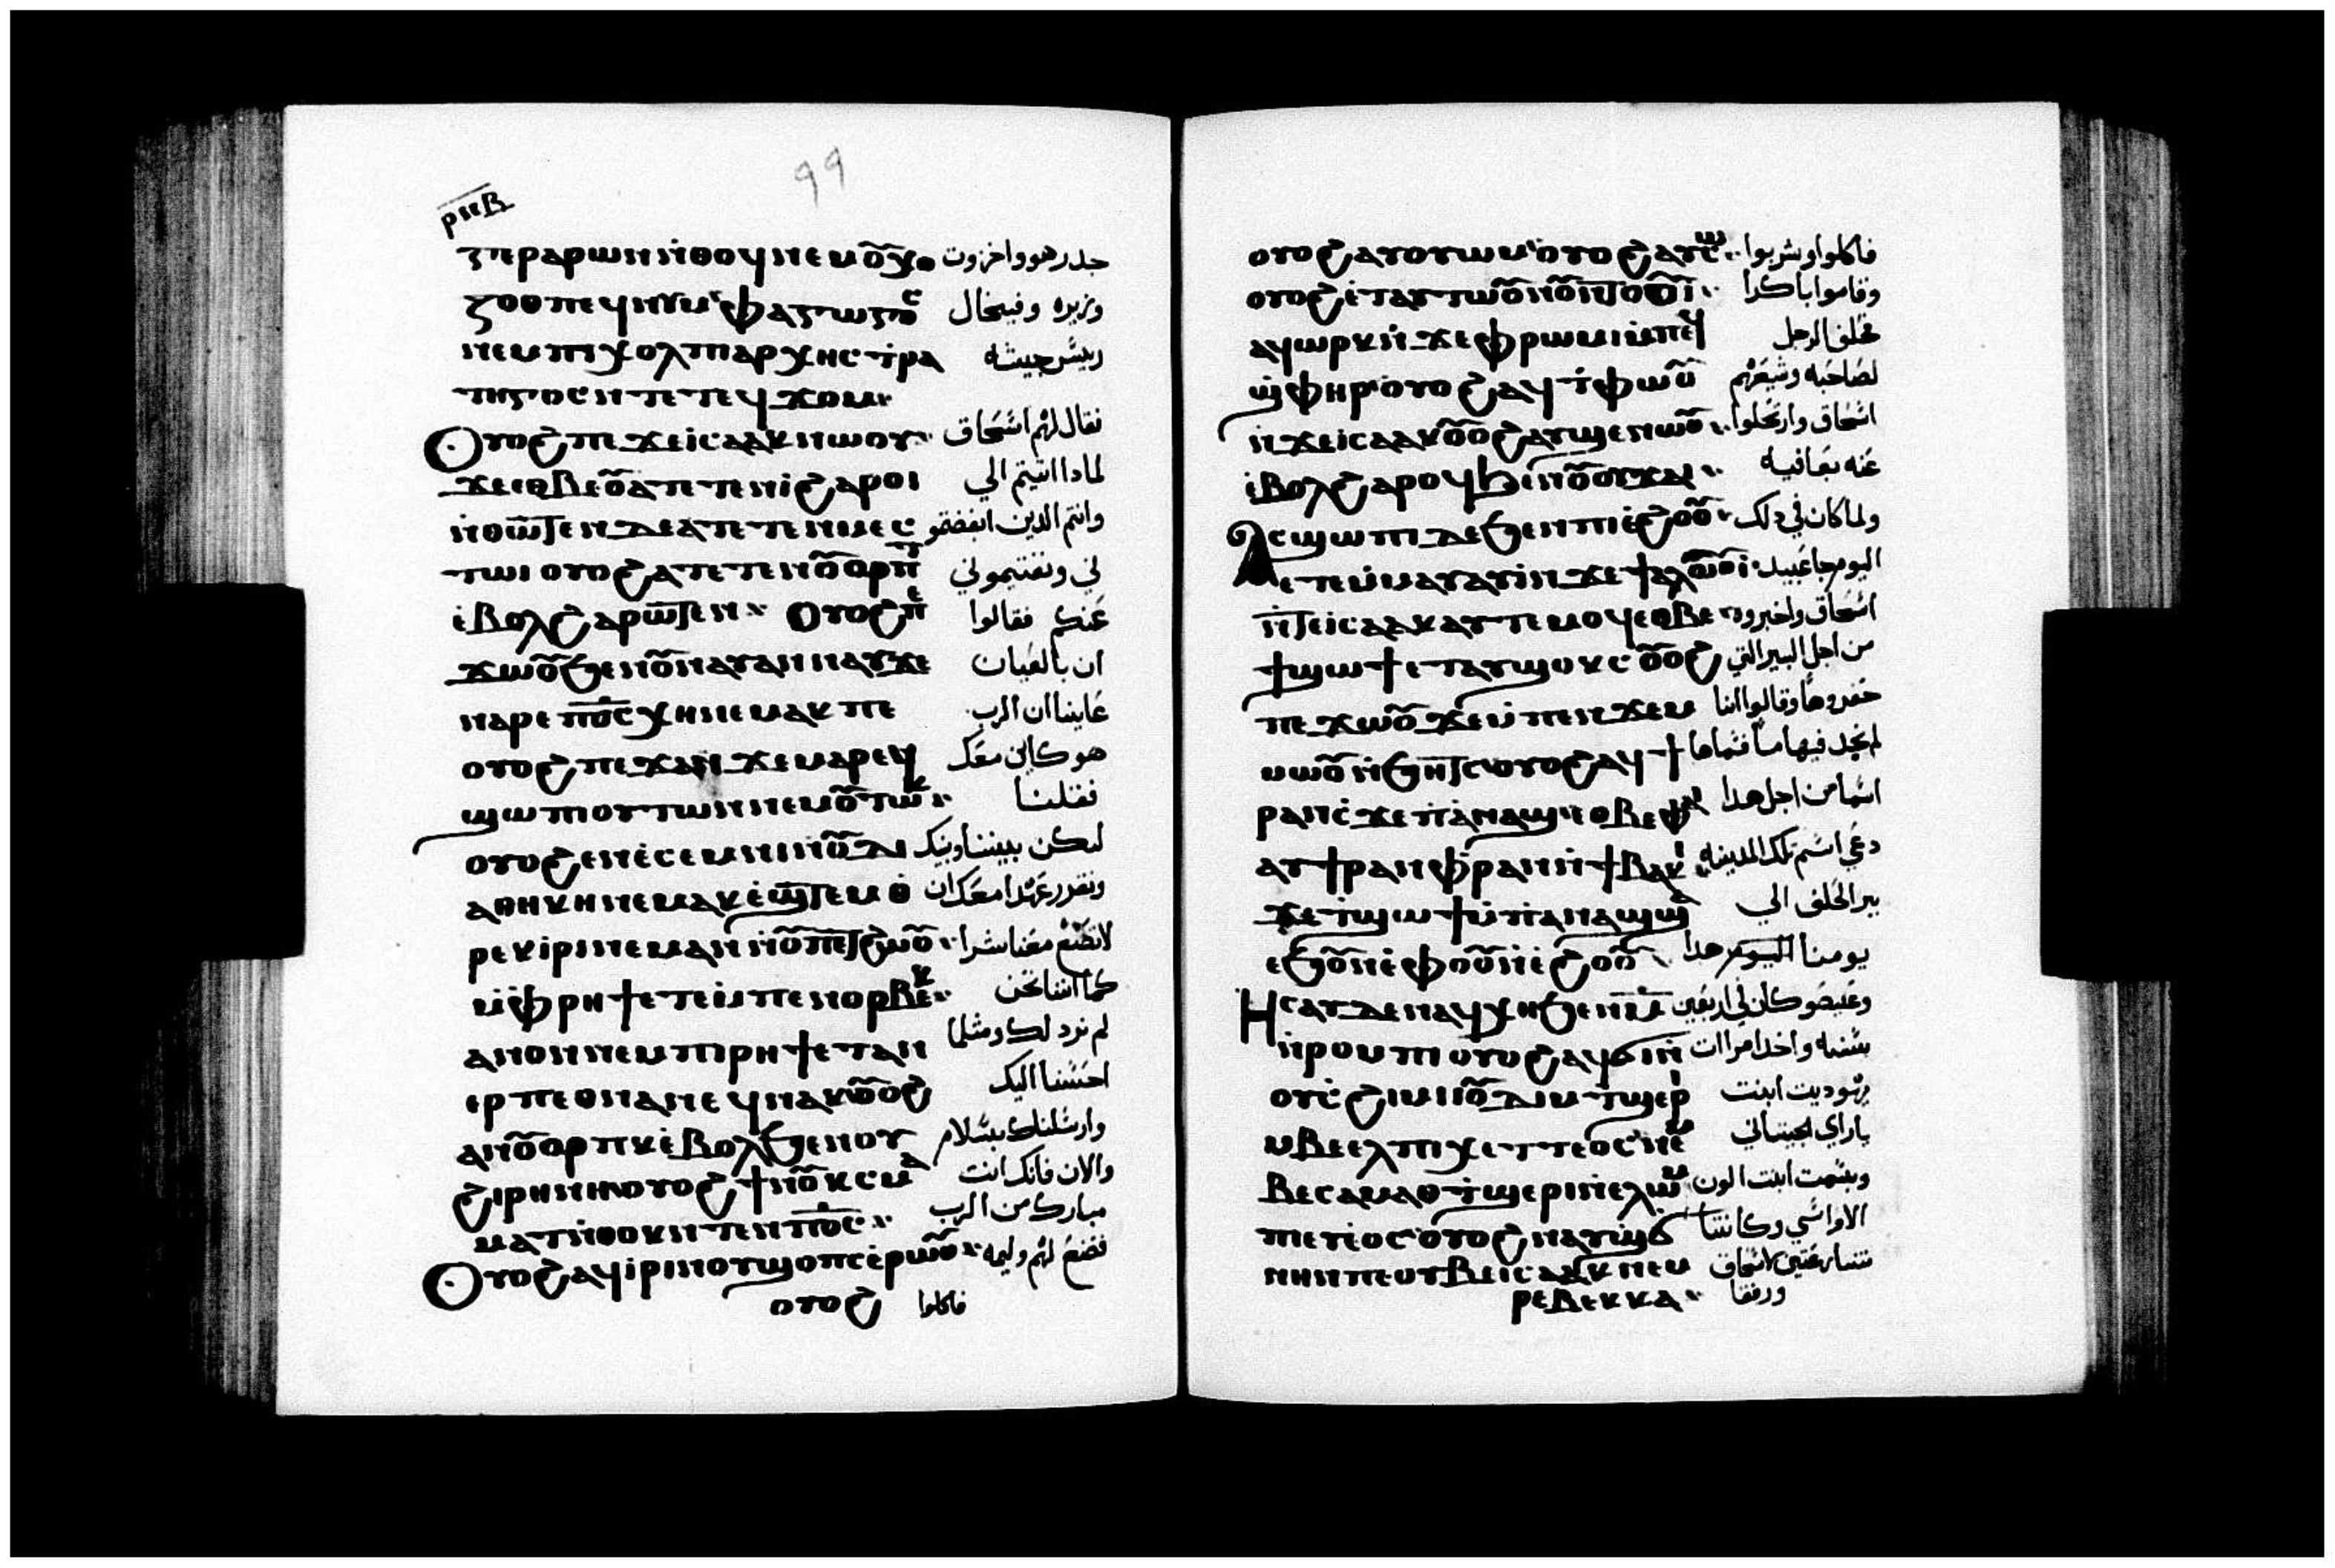 ⲣⲛⲃ
99
ⲅⲉⲣⲁⲣⲱⲛ ⲛ̇ⲑⲟϥ ⲛⲉⲙ ⲟⲩⲭⲟ جدر هو واخزوت
ⲍⲟⲑ ⲡⲉϥⲛⲩⲙⲫⲁⲅⲱⲅⲟⲥ وزيره وفيخال
ⲛⲉⲙ ⲫⲓⲭⲟⲗ ⲡⲁⲣⲭⲏⲥⲧⲣⲁ رييس جيشه
ⲧⲏⲅⲟⲥ ⲛⲧⲉ ⲧⲉϥϫⲟⲙ
ⲟⲩⲟϩ ⲡⲉϫⲉ ⲓⲥⲁⲁⲕ ⲛⲱⲟⲩ فقال لهم اسحاق
ϫⲉ ⲉⲑⲃⲉⲟⲩ ⲁⲧⲉⲧⲉⲛⲓ̇ ϩⲁⲣⲟⲓ لمادا اتيتم الي
ⲛ̇ⲑⲱⲧⲉⲛ ⲇⲉ ⲁⲧⲉⲧⲉⲛⲙⲉⲥ وانتم الدين ابغضتمو
ⲧⲱⲓ ⲟⲩⲟϩ ⲁⲧⲉⲧⲉⲛⲟⲩⲟⲣⲡⲧ ني ونفتيموني
ⲉ̇ⲃⲟⲗ ϩⲁⲣⲱⲧⲉⲛ ⲟⲩⲟϩ ⲡⲉ عنكم فقالوا
ϫⲱⲟⲩ ϧⲉⲛ ⲟⲩⲛⲁⲩ ⲁⲛⲛⲁⲩ ϫⲉ ان بالعيان
ⲛⲁⲣⲉ ⲡϭⲥ ⲭⲏ ⲛⲉⲙⲁⲕ ⲡⲉ عاينا ان الرب
ⲟⲩⲟϩ ⲡⲉϫⲁⲛ ϫⲉ ⲙⲁⲣⲉϥ هو كاين معك
ϣⲱⲡⲓ ⲟⲩⲧⲱⲛ ⲛⲉⲙ ⲟⲩⲧⲱⲕ فقلنا
ⲟⲩⲟϩ ⲉⲛⲉ̇ⲥⲉⲙⲛⲓ ⲛⲟⲩⲇⲓ ليكن بيننا وبينك
ⲁⲑⲏⲕⲏ ⲛⲉⲙⲁⲕ ⲉ̇ϣⲧⲉⲙⲑ ونقرر عهدا معك ان
ⲣⲉⲕⲓ̇ⲣⲓ ⲛⲉⲙⲁⲛ ⲛⲟⲩⲡⲉⲧϩⲱⲟⲩ لاتصنع معنا شرا
ⲙ̇ⲫⲣⲏϯ ⲉⲧⲉⲙⲡⲉⲛⲟⲣⲃⲉⲕ كما اننا نحن
ⲁⲛⲟⲛ ⲛⲉⲙ ⲡⲓⲣⲏϯ ⲉⲧⲁⲛ لم نرد لك ومثلما
ⲉⲣⲡⲉⲑⲛⲁⲛⲉϥ ⲛⲁⲕ ⲟⲩⲟϩ احسنا اليك
ⲁⲛⲟⲩⲟⲣⲡⲕ ⲉ̇ⲃⲟⲗ ϧⲉⲛ ⲟⲩ وارسلناك بسلام
ϩⲓⲣⲏⲛⲏ ⲟⲩⲟϩ ϯⲛⲟⲩ ⲕⲥⲙⲁ والان فانك انت
ⲙⲁⲧ ⲛ̇ⲑⲟⲕ ⲛⲧⲉⲛ ⲡϭⲥ مبارك من الرب
ⲟⲩⲟϩ ⲁϥⲓ̇ⲣⲓ ⲛⲟⲩϣⲟⲡⲥ ⲉ̇ⲣⲱⲟⲩ فصنع لهم وليمه
ⲟⲩⲟϩ فاكلوا
ⲟⲩⲟϩ ⲁⲩⲟⲩⲱⲙ ⲟⲩⲟϩ ⲁⲩⲥⲱ فاكلوا وشربوا
ⲟⲩⲟϩ ⲉ̇ⲧⲁⲩⲧⲱⲟⲩⲛⲟⲩ ⲛ̇ⲧⲟⲟⲩⲓ وقاموا باكرا
ⲁϥⲱⲣⲕ ⲛ̇ϫⲉ ⲫⲣⲱⲙⲓ ⲙ̇ⲡⲉϥ فحلف الرجل
ϣ̇ⲫⲏⲣ ⲟⲩⲟϩ ⲁϥⲧ̇ⲫⲱⲟⲩ لصاحبه وشيعهم
ⲛ̇ϫⲉ ⲓⲥⲁⲁⲕ ⲟⲩⲟϩ ⲁⲩϣⲉⲛⲱⲟⲩ اسحاق وارتحلوا
ⲉ̇ⲃⲟⲗ ϩⲁⲣⲟϥ ϧⲉⲛ ⲟⲩⲟⲩϫⲁⲓ عنه بعافيه
ⲁⲥϣⲱⲡⲓ ⲇⲉ ϧⲉⲛ ⲡⲓⲉ̇ϩⲟⲟⲩ ولما كان في دلك
ⲉⲧⲉⲙ̇ⲙⲁⲩ ⲁⲩⲓ̇ ⲛϫⲉ ϯⲁⲗⲱⲟⲩⲓ اليوم جا عبيد
ⲛ̇ⲧⲉ ⲓⲥⲁⲁⲕ ⲁⲩⲧⲁⲙⲟϥ ⲉⲑⲃⲉ اسحاق واخبروه
ϯϣⲱϯ ⲉⲧⲁⲩϣⲟⲕⲥ ⲟⲩⲟϩ من اجل البير التي
ⲡⲉϫⲱⲟⲩ ϫⲉ ⲙ̇ⲡⲉⲛϫⲉⲙ حفروها وقالوا اننا
ⲙⲱⲟⲩ ⲛ̇ϧⲏⲧⲥ ⲟⲩⲟϩ ⲁϥϯ لم نجد فيها ما فسماها
ⲣⲁⲛⲥ ϫⲉ ⲡⲁ̇ⲛⲁϣ ⲉⲑⲃⲉⲫⲁⲓ اسما من اجل هدا
ⲁⲩϯⲣⲁⲛ ⲫ̇ⲣⲁⲛ ⲛ̇ϯⲃⲁⲕⲓ دعي اسم تلك المدينه
ϫⲉ ϯϣⲱϯ ⲙ̇ⲡⲁⲛⲁϣ ϣⲁ بير الحلف الي
ⲉϧⲟⲩⲛ ⲉ̇ⲫⲟⲟⲩ ⲛ̇ⲉ̇ϩⲟⲟⲩ يومنا اليوم هدا
ⲏⲥⲁⲩ ⲇⲉ ⲛⲁϥⲭⲏ ϧⲉⲛ ⲙ̅ وعيصو كان في اربعين
ⲛ̇ⲣⲟⲙⲡⲓ ⲟⲩⲟϩ ⲁϥϭⲓ ⲛ سنه واخد امراات
ⲟⲩⲥ̇ϩⲓⲙⲓ ⲓⲟⲩⲇⲓⲛ ⲧ̇ϣⲉⲣⲓ يهوديت ابنت
ⲙⲃⲉⲉⲗ ⲡⲓⲭⲉⲧⲧⲉⲟⲥ ⲛⲉⲙ باراي الجيتاني
ⲃⲉⲥⲁⲙⲁⲑ ⲧ̇ϣⲉⲣⲓ ⲛⲉⲗⲱⲙ وبسمت ابنت الون
ⲡⲉⲧⲉⲟⲥ ⲟⲩⲟϩ ⲛⲁⲩϣϭ الاواسي وكانتا
ⲛⲏⲛ ⲡⲉ ⲟⲩⲃⲉ ⲓⲥⲁⲁⲕ ⲛⲉⲙ تتسارعتين لاسحاق
ⲣⲉⲃⲉⲕⲕⲁ ورفقا